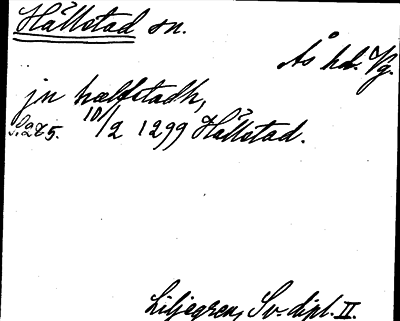 Hällstad sn.
Ås hd. Vg.
jn hælfstadh,
s. 275. 10/2 1299 Hällstad.
Liljegren, Sv. dipl. II.